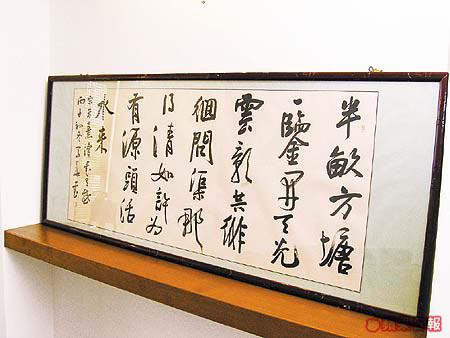 半畝方塘
一鑒開天光
雲影共徘
徊問渠那
得清如許為
有源頭活
水来
報